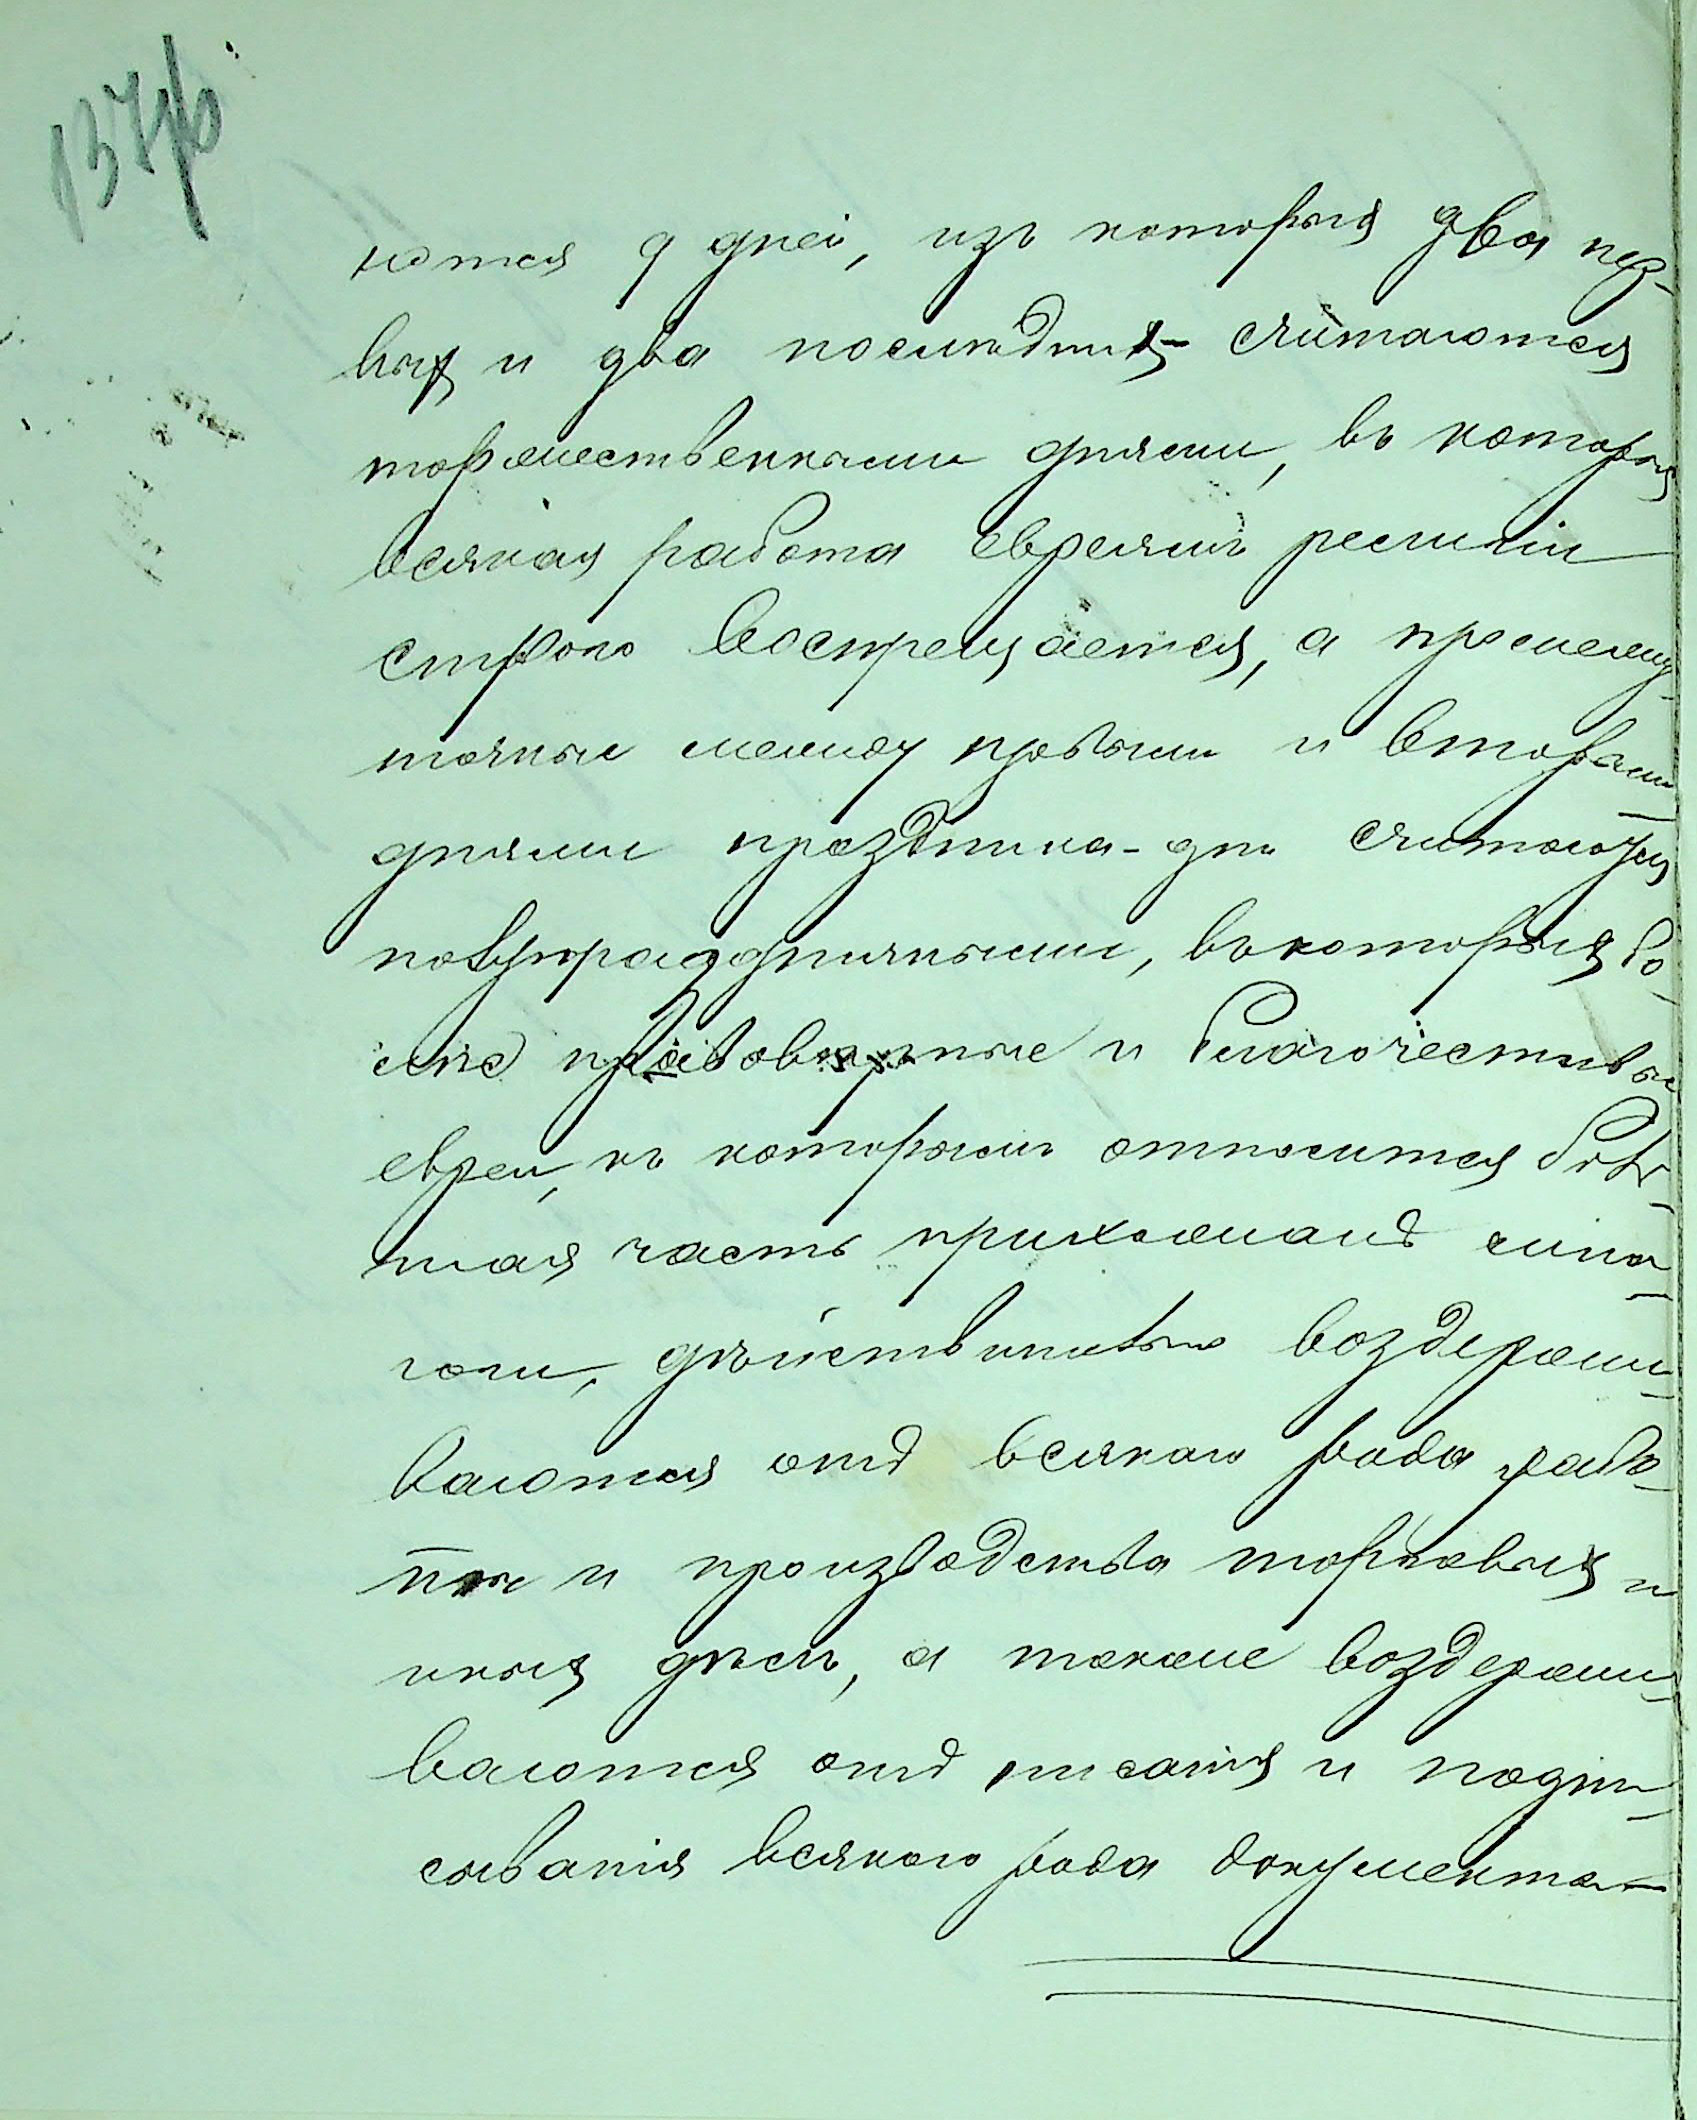 137об
ются 9 дней, изъ которыхъ два пер-
выхъ и два последнихъ считаются
торжественными днями, въ которыя
всякая работа евреямъ религіи
строго воспрещается, а промежу-
точные между первыми и вторыми
днями праздника - дни считаются
полупраздничными, въ которыя бо-
лѣе правовѣрные и благочестивые
евреи, къ которымъ относится боль-
шая часть прихожанъ сина-
гоги, дѣйствительно воздержи-
ваются отъ всякаго рода рабо-
ты и производства торговыхъ и
иныхъ дѣлъ, а также воздержи-
ваются отъ писанія и подпи-
сыванія всякаго рода документа-